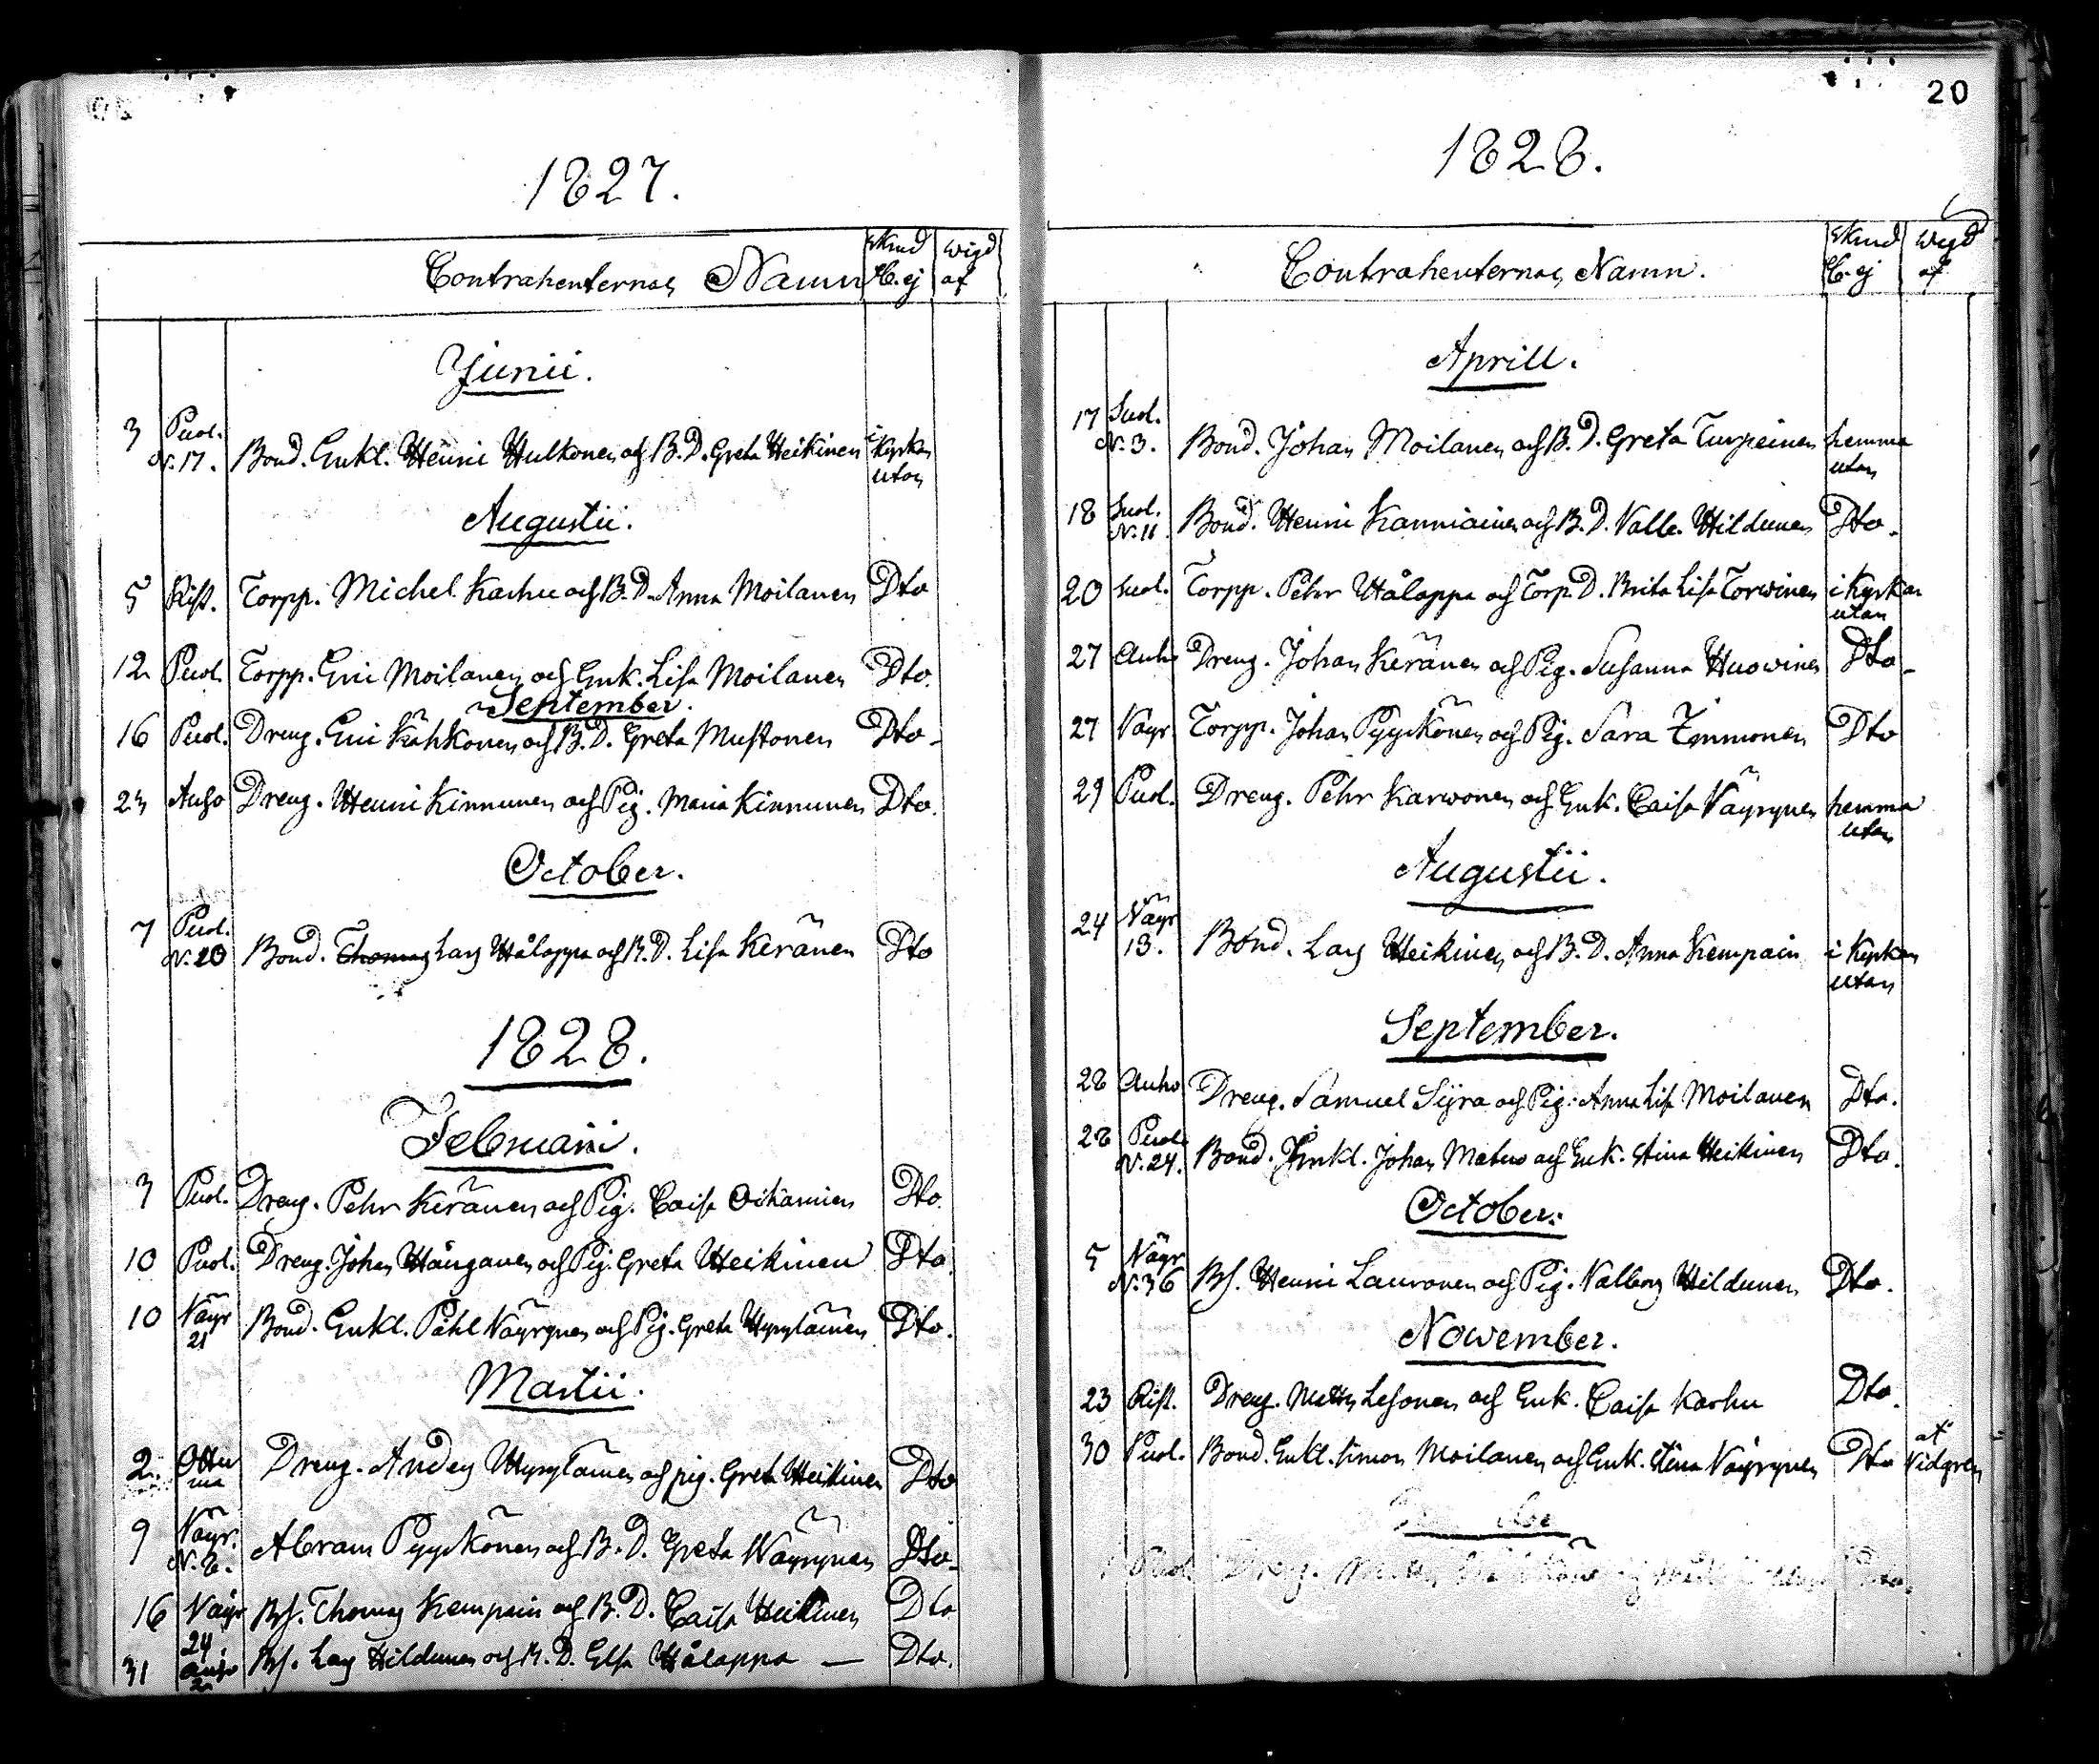 1827.
Contrahenternas Namn
skrud
el. ej
wigd
af
Junii.
3 Puol. N. 17. Bond. Enkl. Henric Hulkonen och B. D. Greta Heikinen i Kyrkan utan
Augustii.
5 Rist. Torpp. Michel Karhu och B. D. Anna Moilanen Dto
12 Puol. Torpp. Eric Moilanen och Enk. Lisa Moilanen Dto.
September.
16 Puol. Dreng. Eric Kähkönen och B. D. Greta Mustonen Dto
23 Auho Dreng. Henric Kinnunen och Pig. Maria Kinnunen Dto.
October.
7 Puol. N. 20 Bond. Thomas Lars Hålappa och B. D. Lisa Keränen Dto
1828.
Februarii.
3 Puol. Dreng. Pehr Keränen och Pig. Caisa Oikarinen Dto.
10 Puol. Dreng. Johan Hänganen och Pig. Greta Heikinen Dto.
10 Väyr 21 Bond. Enkl. Påhl Väyrynen och Pig. Greta Hyryläinen Dto.
Martii.
2. Otterma Dreng. Anders Hyryläinen och pig. Greta Heikinen Dto
9 Väyr. N. 8. Abram Pyykönen och B. D. Greta Wäyrynen Dto
16 Väyr 24 Bs. Thomas Kempain och B. D. Caisa Heikinen Dto
31 Auho 2 Bs. Lars Hildunen och B. D. Elsa Hålappa — Dto.
20
1828.
Contrahenternas Namn.
skrud
el. ej
wigd
af
Aprill.
17 Suol. N. 3. Bond. Johan Moilanen och B. D. Greta Turpeinen hemma utan
18 Suol. N. 11 Bond. Henric Kanniainen och B. D. Valb. Hildunen Dto.
20 Suol. Torpp. Pehr Hålappa och Torp. D. Brita Lisa Torvinen i Kyrkan utan
27 Auho Dreng. Johan Keränen och Pig. Susanna Huovinen Dto
27 Väyr Torpp. Johan Pyykönen och Pig. Sara Timmonen Dto
29 Puol. Dreng. Pehr Karvonen och Enk. Caisa Väyrynen hemma utan
Augustii.
24 Väyr 13. Bond. Lars Heikinen och B. D. Anna Kempain i Kyrkan utan
September.
28 Auho Dreng. Samuel Syra och Pig. Anna Lisa Moilanen Dto.
28 Puol. N. 24. Bond. Enkl. Johan Matero och Enk. Stina Heikinen Dto.
October.
5 Väyr N. 36 Bs. Henric Lauronen och Pig. Valborg Hildunen Dto.
November.
23 Rist. Dreng. Matts Lesonen och Enk. Caisa Karhu Dto.
30 Puol. Bond. Enkl. Simon Moilanen och Enk. Stina Väyrynen Dto af Vidgren
Puol. Dreng.